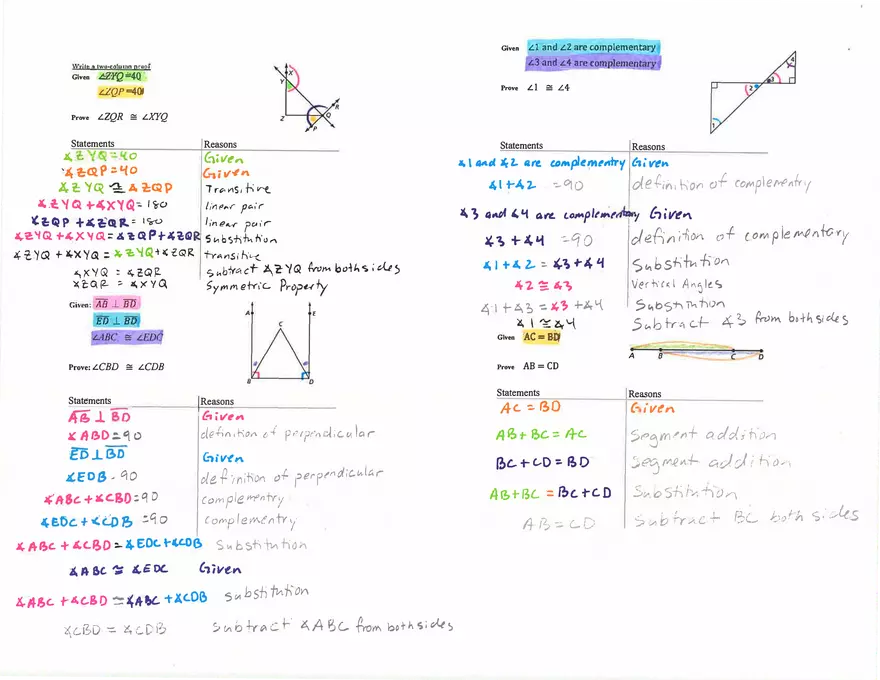 Write a two-column proof
Given ∠ZYQ=40
∠ZQP=40
Prove ∠ZQR ≅ ∠XYQ
X
Y
Z
Q
R
P
Statements Reasons
∡ZYQ=40 Given
∡ZQP=40 Given
∡ZYQ ≅ ∡ZQP Transitive
∡ZYQ + ∡XYQ = 180 linear pair
∡ZQP + ∡ZQR = 180 linear pair
∡ZYQ + ∡XYQ = ∡ZQP + ∡ZQR Substitution
∡ZYQ + ∡XYQ = ∡ZYQ + ∡ZQR transitive
∡XYQ = ∡ZQR subtract ∡ZYQ from both sides
∡ZQR = ∡XYQ Symmetric Property
Given: AB ⊥ BD
ED ⊥ BD
∠ABC ≅ ∠EDC
Prove: ∠CBD ≅ ∠CDB
A
E
C
B
D
Statements Reasons
AB ⊥ BD Given
∡ABD = 90 definition of perpendicular
ED ⊥ BD Given
∡EDB - 90 definition of perpendicular
∡ABC + ∡CBD = 90 complementry
∡EDC + ∡CDB = 90 complementry
∡ABC + ∡CBD = ∡EDC + ∡CDB Substitution
∡ABC ≅ ∡EDC Given
∡ABC + ∡CBD = ∡ABC + ∡CDB substitution
∡CBD = ∡CDB Subtract ∡ABC from both sides
Given ∠1 and ∠2 are complementary
∠3 and ∠4 are complementary
Prove ∠1 ≅ ∠4
4
3
2
1
Statements Reasons
∡1 and ∡2 are complementry Given
∡1+∡2 =90 definition of complementry
∡3 and ∡4 are complementary Given
∡3+∡4 =90 definition of complementary
∡1+∡2 = ∡3+∡4 Substitution
∡2 ≅ ∡3 Vertical Angles
∡1+∡3 = ∡3+∡4 Substitution
∡1 ≅ ∡4 Subtract ∡3 from both sides
Given AC = BD
Prove AB = CD
A B C D
Statements Reasons
AC = BD Given
AB + BC = AC Segment addition
BC + CD = BD Segment addition
AB+BC = BC+CD Substitution
AB = CD Subtract BC both sides